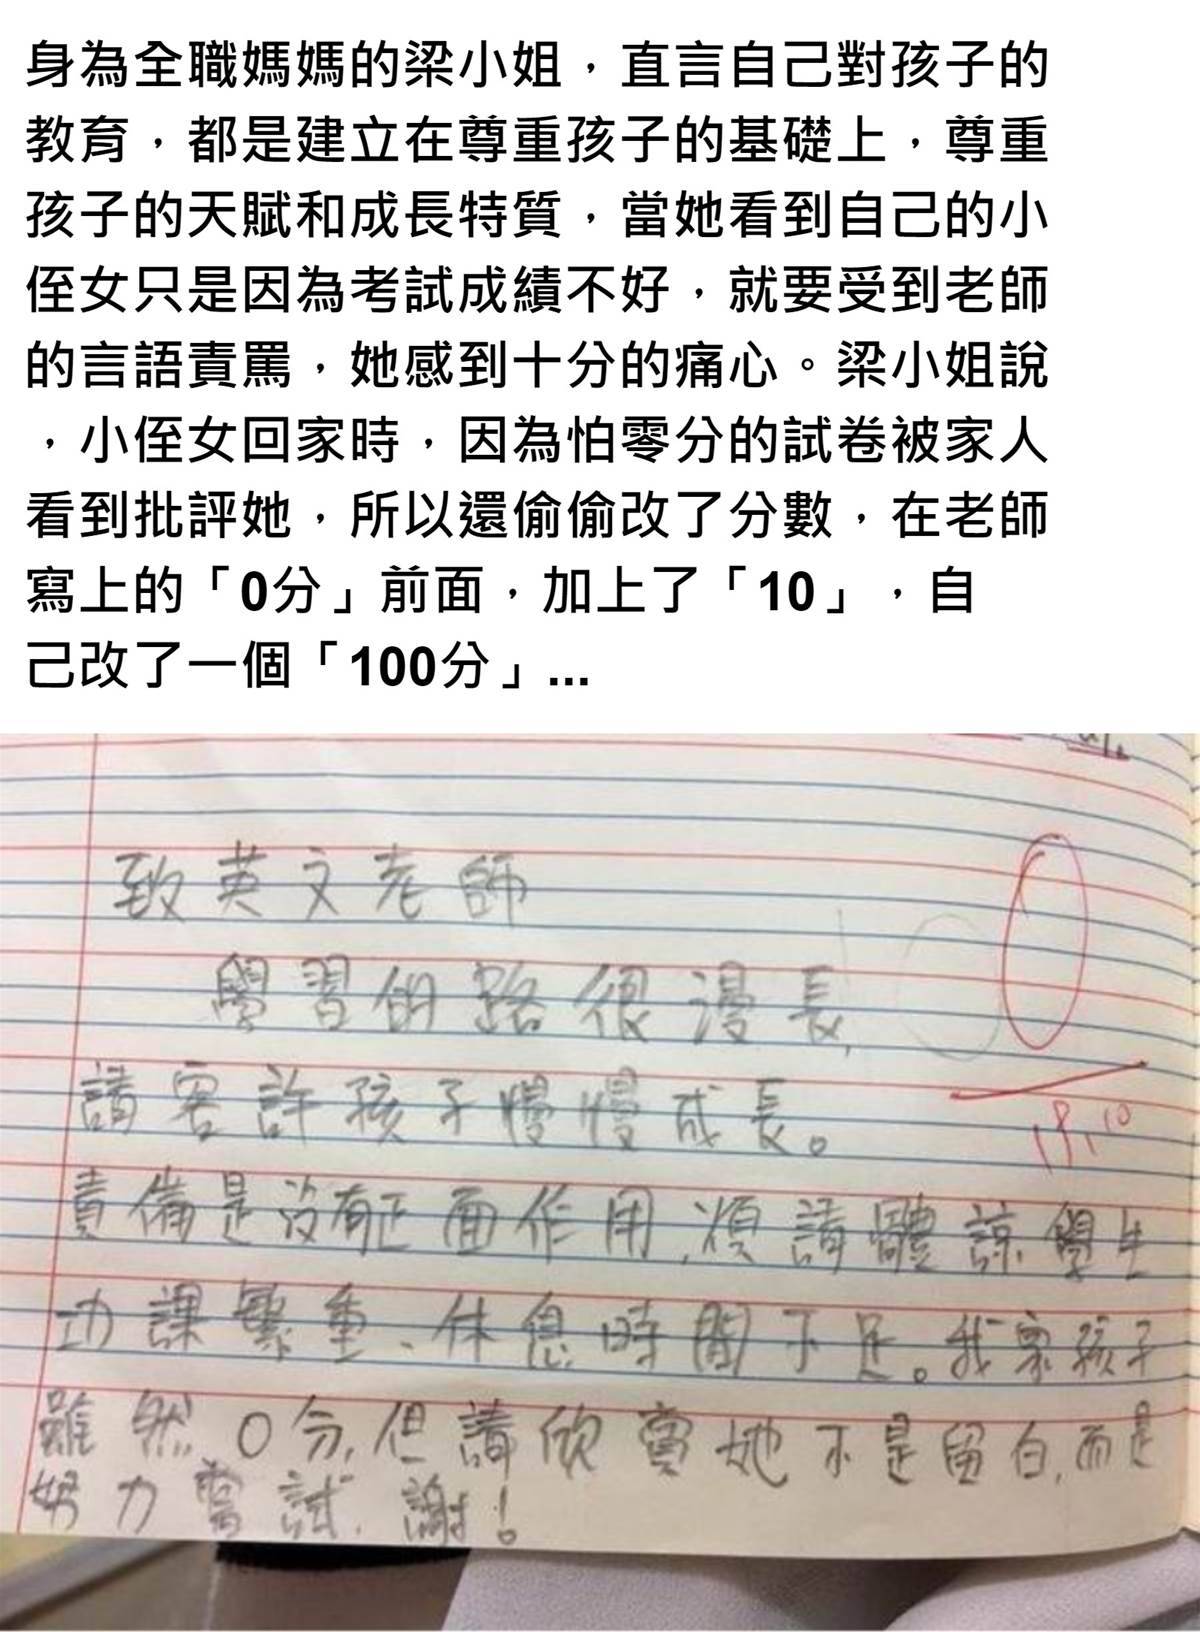 身為全職媽媽的梁小姐，直言自己對孩子的
教育，都是建立在尊重孩子的基礎上，尊重
孩子的天賦和成長特質，當她看到自己的小
侄女只是因為考試成績不好，就要受到老師
的言語責罵，她感到十分的痛心。梁小姐說
，小侄女回家時，因為怕零分的試卷被家人
看到批評她，所以還偷偷改了分數，在老師
寫上的「0分」前面，加上了「10」，自
己改了一個「100分」...
致英文老師
學習的路很漫長,
請容許孩子慢慢成長。
責備是沒有正面作用,煩請體諒學生
功課繁重、休息時間不足。我家孩子
雖然0分,但請欣賞她不是留白,而是
努力嘗試,謝!
100